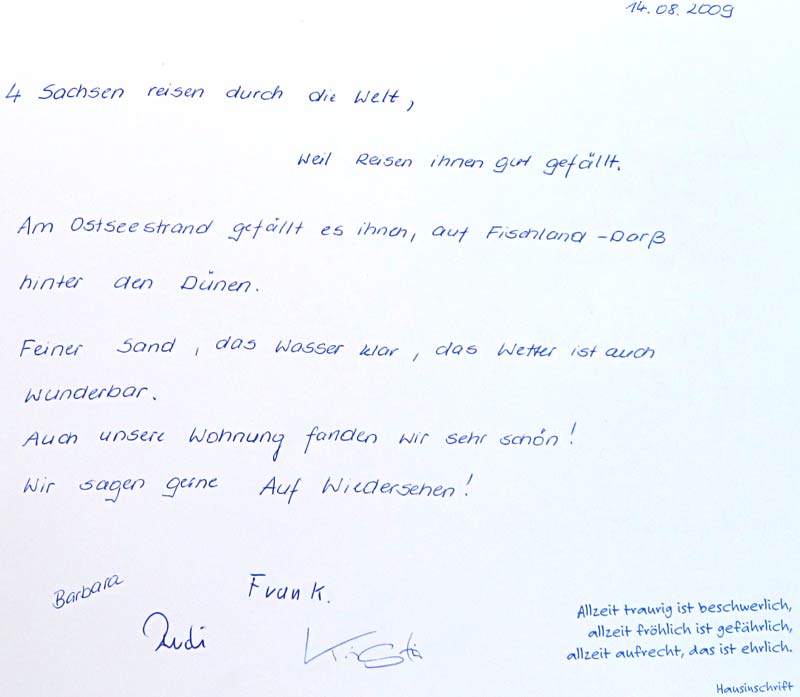 14.08.2009
4 Sachsen reisen durch die Welt,
Weil Reisen ihnen gut gefällt.
Am Ostseestrand gefällt es ihnen, auf Fischland-Darß
hinter den Dünen.
Feiner Sand, das Wasser klar, das Wetter ist auch
wunderbar.
Auch unsere Wohnung fanden wir sehr schön!
Wir sagen gerne Auf Wiedersehen!
Barbara
Frank.
Rudi
Allzeit traurig ist beschwerlich,
allzeit fröhlich ist gefährlich,
allzeit aufrecht, das ist ehrlich.
Hausinschrift